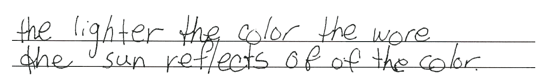 the lighter the color the wore
the sun reflects of of the color